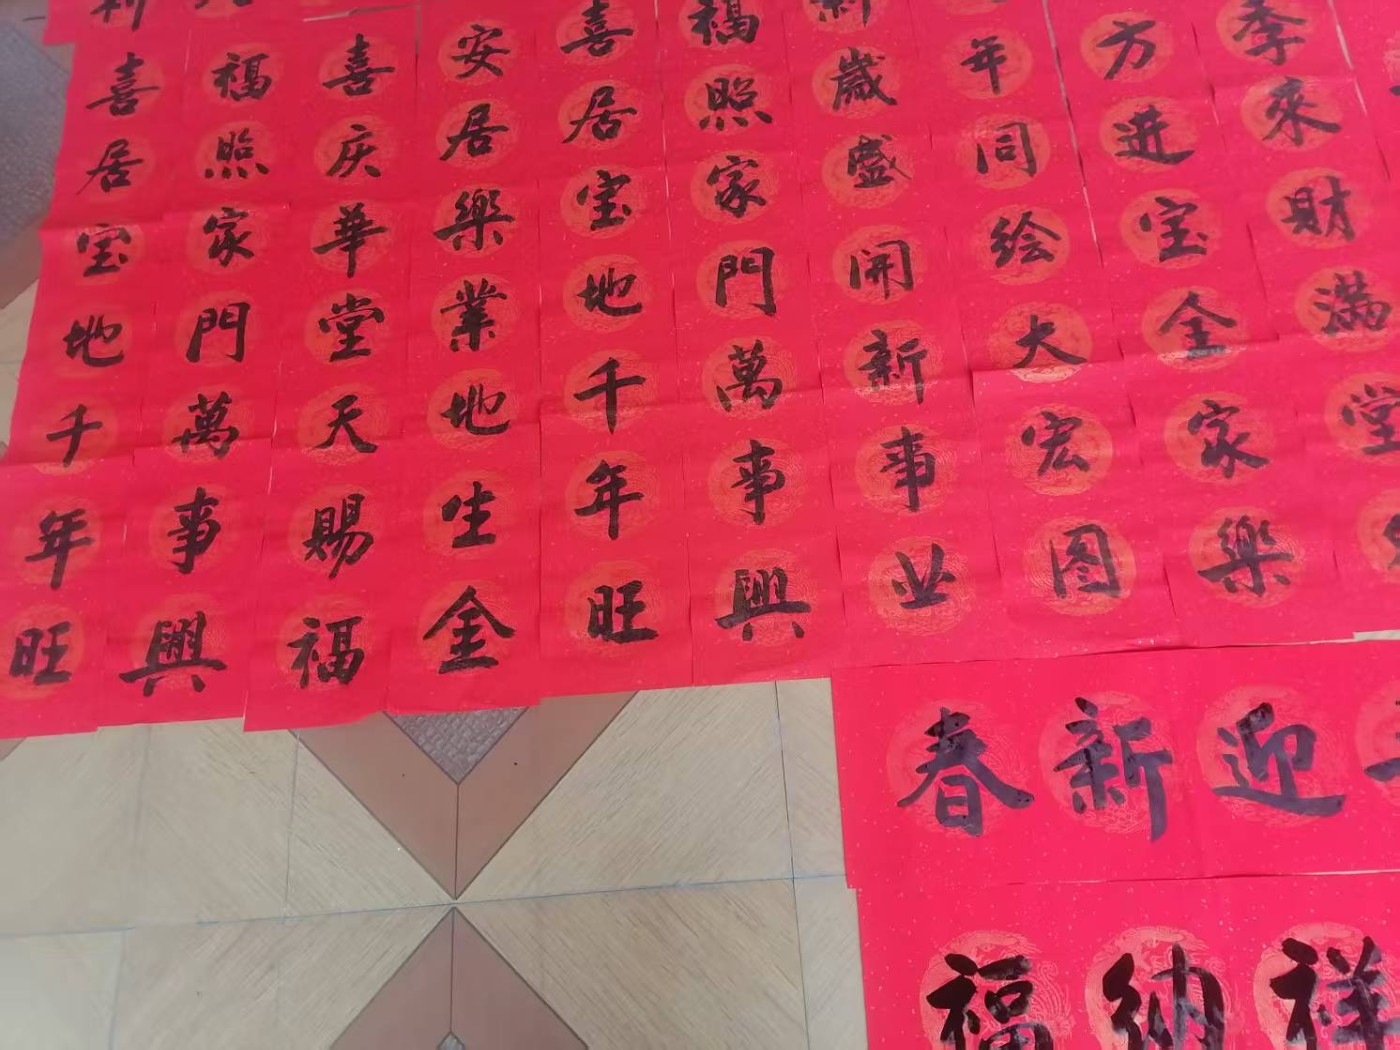 喜居宝地千年旺
福照家門萬事興
喜庆華堂天賜福
安居樂業地生金
喜居宝地千年旺
福照家門萬事興
新歲盛開新事业
年同绘大宏图
方进宝全家樂
季來財满堂
迎新春
祥納福